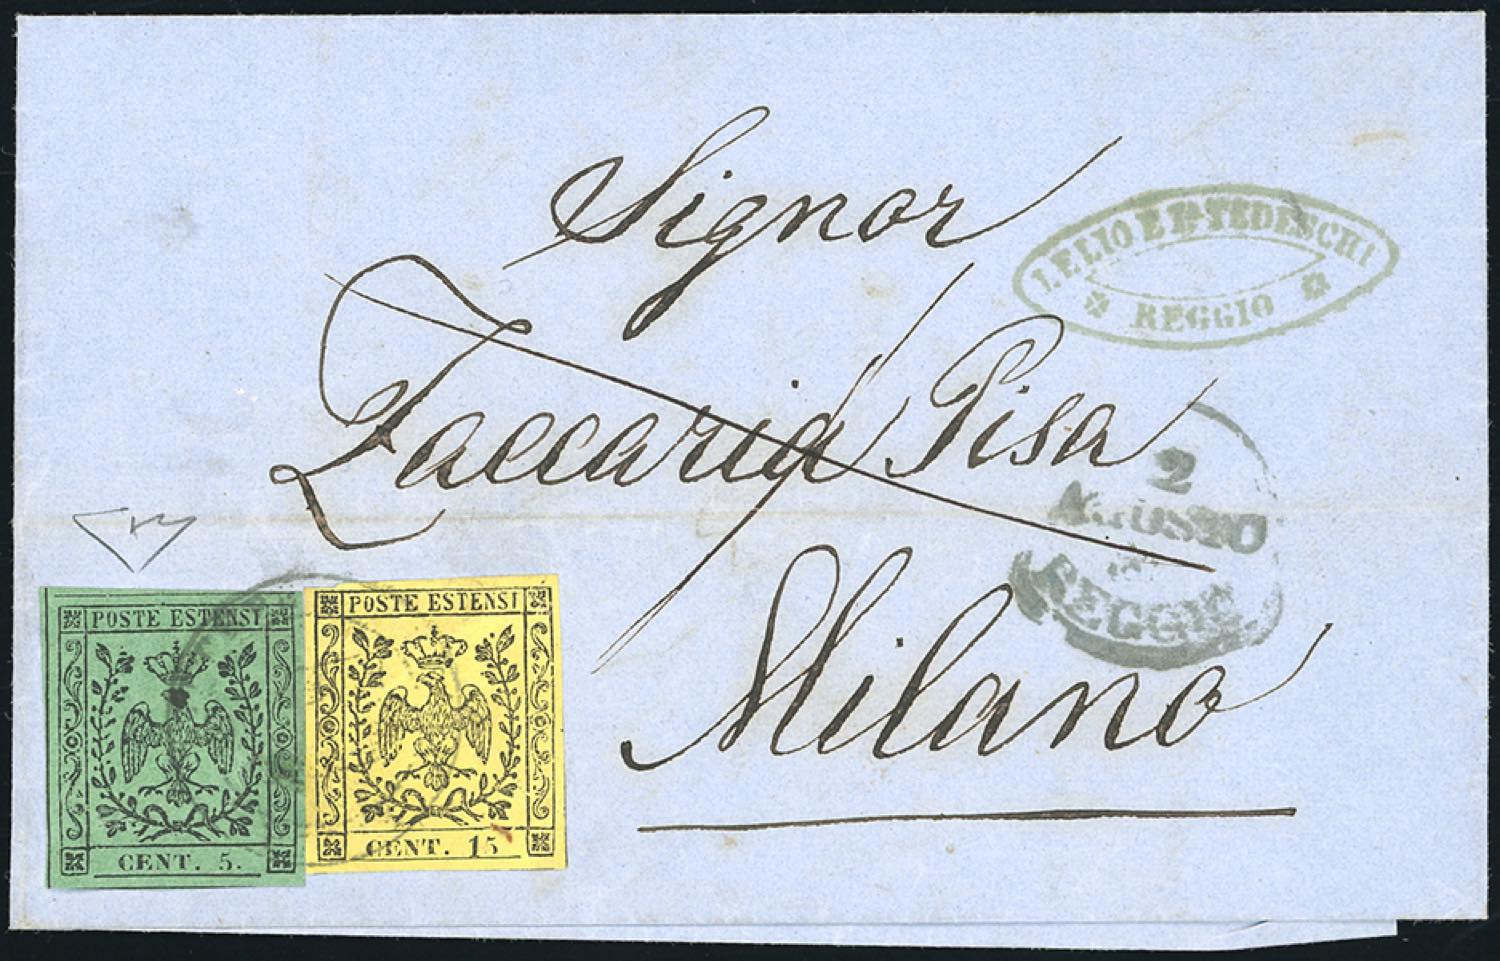 Signor
LELIO E Fr. TEDESCHI
REGGIO
Zaccaria Pisa
2
AGOSTO
REGGIO
Milano
POSTE ESTENSI
CENT. 5.
POSTE ESTENSI
CENT. 15